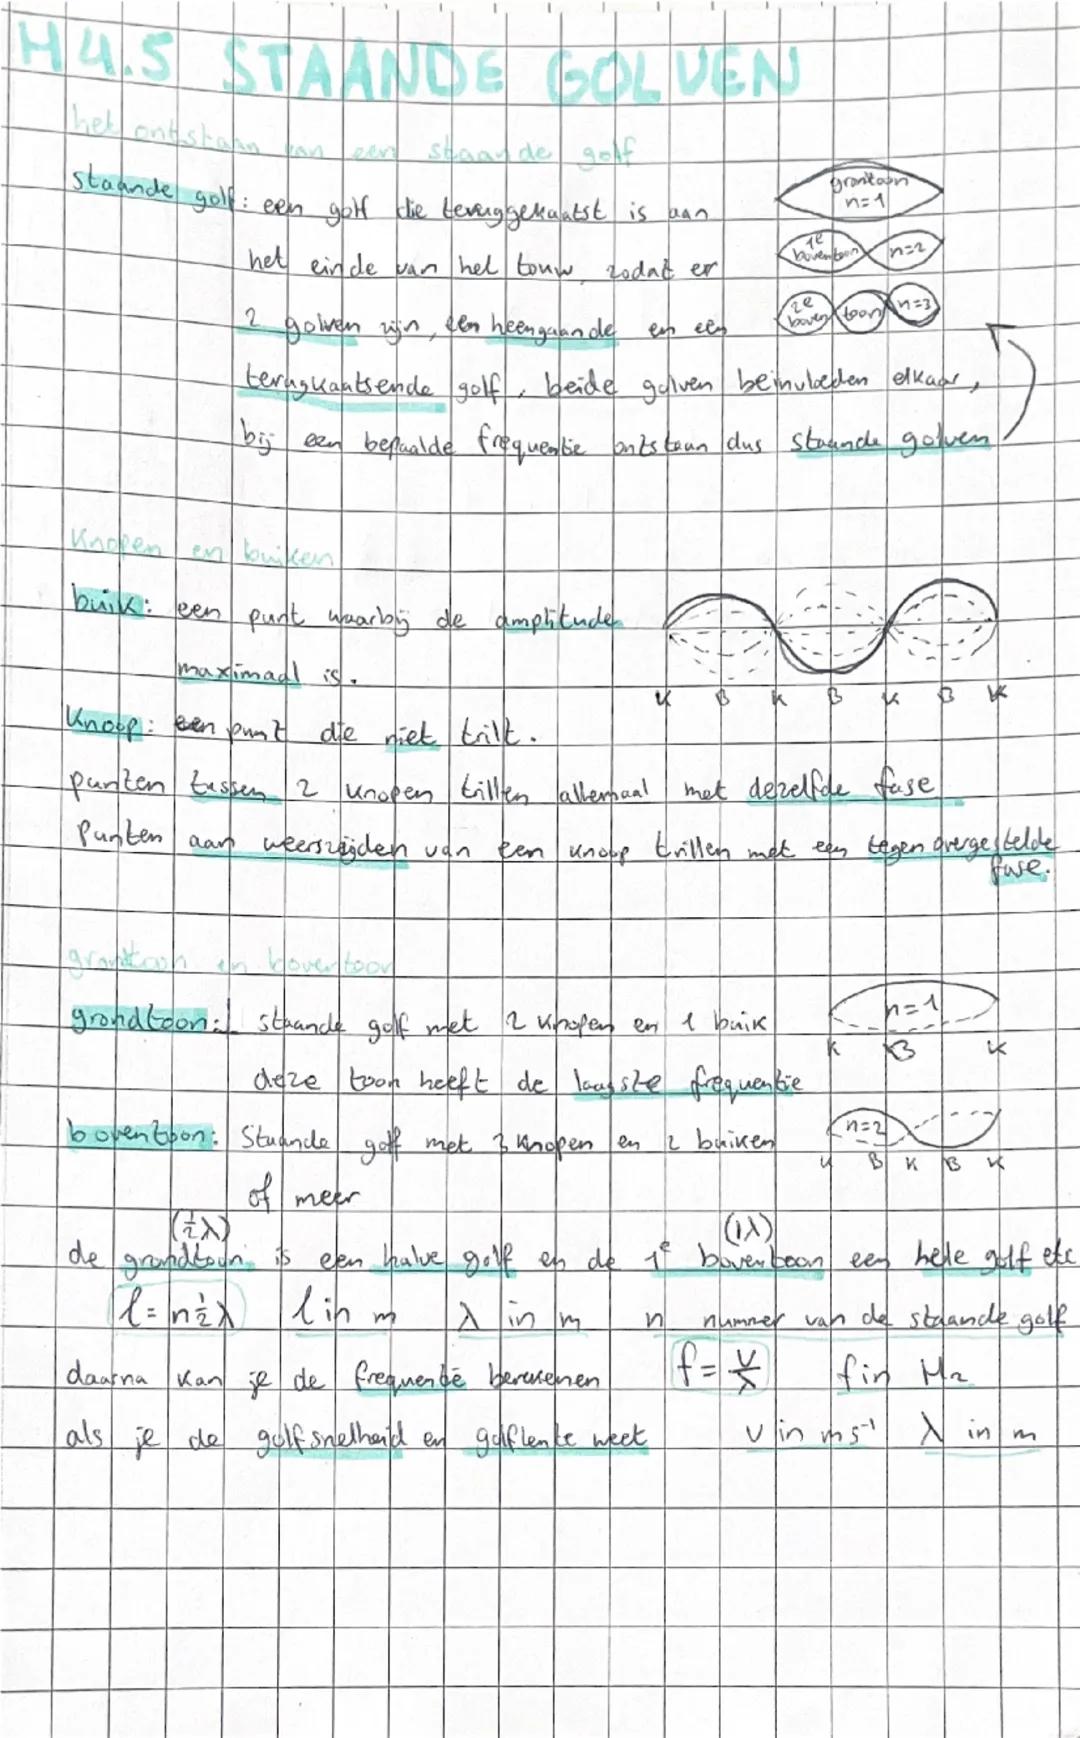 H4.5 STAANDE GOLVEN
het ontstaan van een staande golf
staande golf: een golf die teruggekaatst is aan
het einde van het touw, zodat er
2 golven zijn, een heengaande en een
terugkaatsende golf, beide golven beinvloeden elkaar,
bij een bepaalde frequentie ontstaan dus staande golven
grontoon
n=1
1e boventoon n=2
2e boven toon n=3
Knopen en buiken
buik: een punt waarbij de amplitude
maximaal is.
K B K B K B K
Knoop: een punt die niet trilt.
punten tussen 2 knopen trillen allemaal met dezelfde fase
Punten aan weerszijden van een knoop trillen met een tegenovergestelde
fase.
grondtoon en boventoon
grondtoon: staande golf met 2 knopen en 1 buik
deze toon heeft de laagste frequentie
n=1
K B K
boventoon: Staande golf met 3 knopen en 2 buiken
of meer
n=2
K B K B K
(½λ) (1λ)
de grondtoon is een halve golf en de 1e boventoon een hele golf etc
l = n½λ l in m λ in m n nummer van de staande golf
daarna kan je de frequentie berekenen f = v/λ f in Hz
als je de golfsnelheid en golflente weet v in ms⁻¹ λ in m